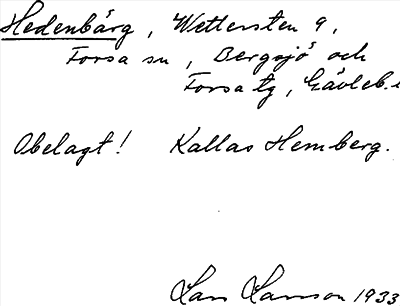 Hedenbärg, Wettersten 9,
Forsa sn, Bergsjö och
Forsa tg, Gävleb.
Obelagt! Kallas Hemberg.
Lars Larsson 1933